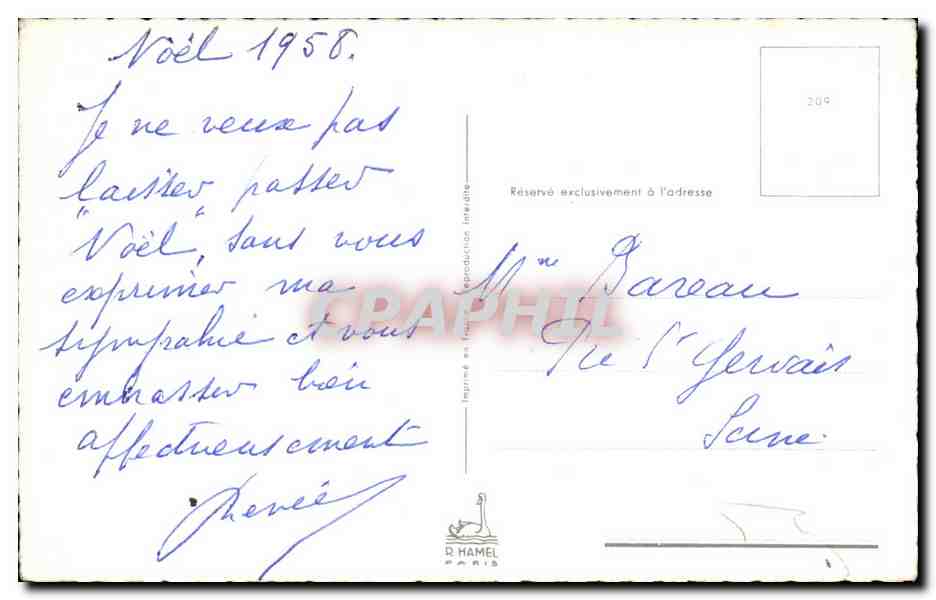 Noël 1958.
Je ne veux pas
laisser passer
"Noël" sans vous
exprimer ma
sympathie et vous
embrasser bien
affectueusement
Renée
Imprimé en France - Reproduction interdite
209
Réservé exclusivement à l'adresse
Mme Bareau
Pré St Gervais
Seine.
CPAPHIL
R. HAMEL
PARIS